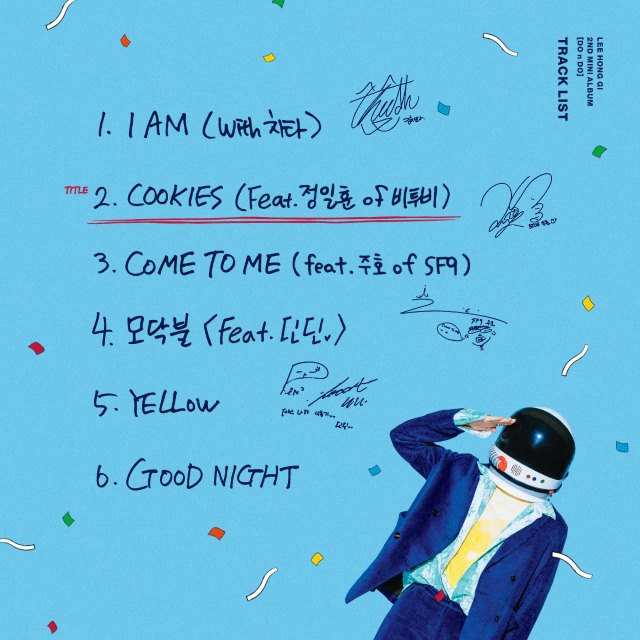 LEE HONG GI
2ND MINI ALBUM
[DO n DO]
TRACK LIST
1. I AM (With 치타)
TITLE 2. COOKIES (Feat. 정일훈 of 비투비)
3. COME TO ME (feat. 주호 of SF9)
4. 모닥불 <Feat. 딘딘.>
5. YELLOW
6. GOOD NIGHT